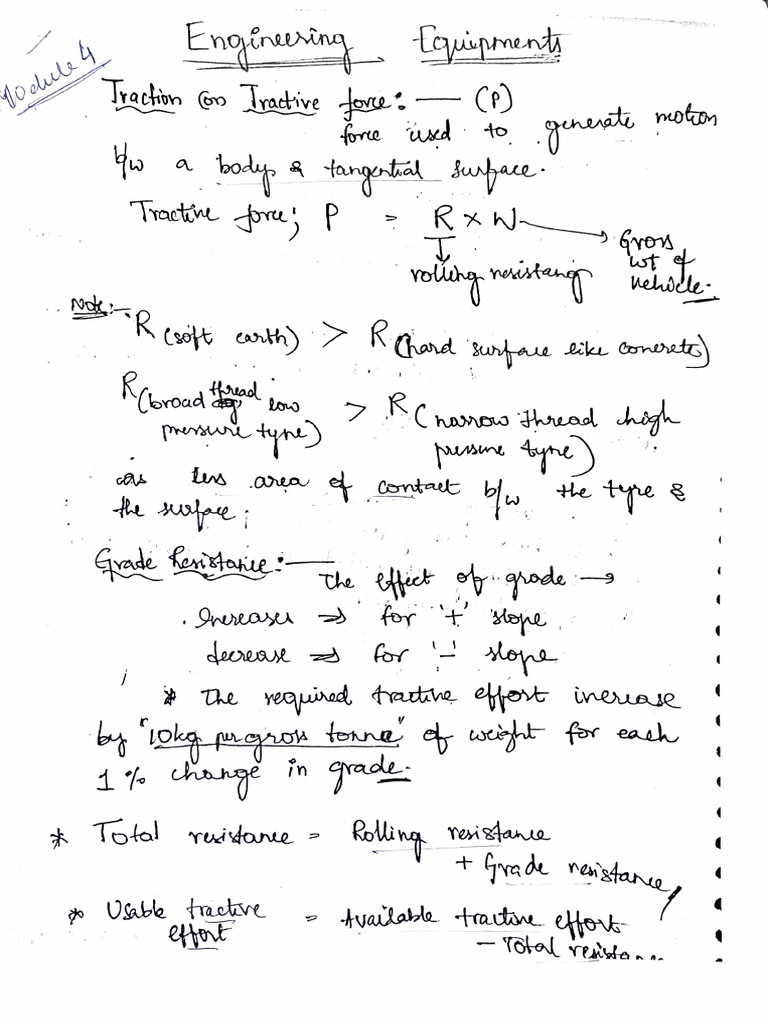 Module 4
Engineering Equipments
Traction (or) Tractive force :— (P)
force used to generate motion
b/w a body & tangential surface.
Tractive force; P = R × W → Gross
wt of
vehicle.
rolling resistance
Note:-
R (soft earth) > R (hard surface like concrete)
R (broad thread low
pressure tyre) > R (narrow thread high
pressure tyre)
as less area of contact b/w the tyre &
the surface;
Grade Resistance :—
The effect of grade →
Increases ⇒ for '+' slope
decrease ⇒ for '-' slope
* The required tractive effort increase
by "10kg per gross tonne" of weight for each
1 % change in grade.
* Total resistance = Rolling resistance
+ Grade resistance
* Usable tractive
effort = Available tractive effort
- Total resistance